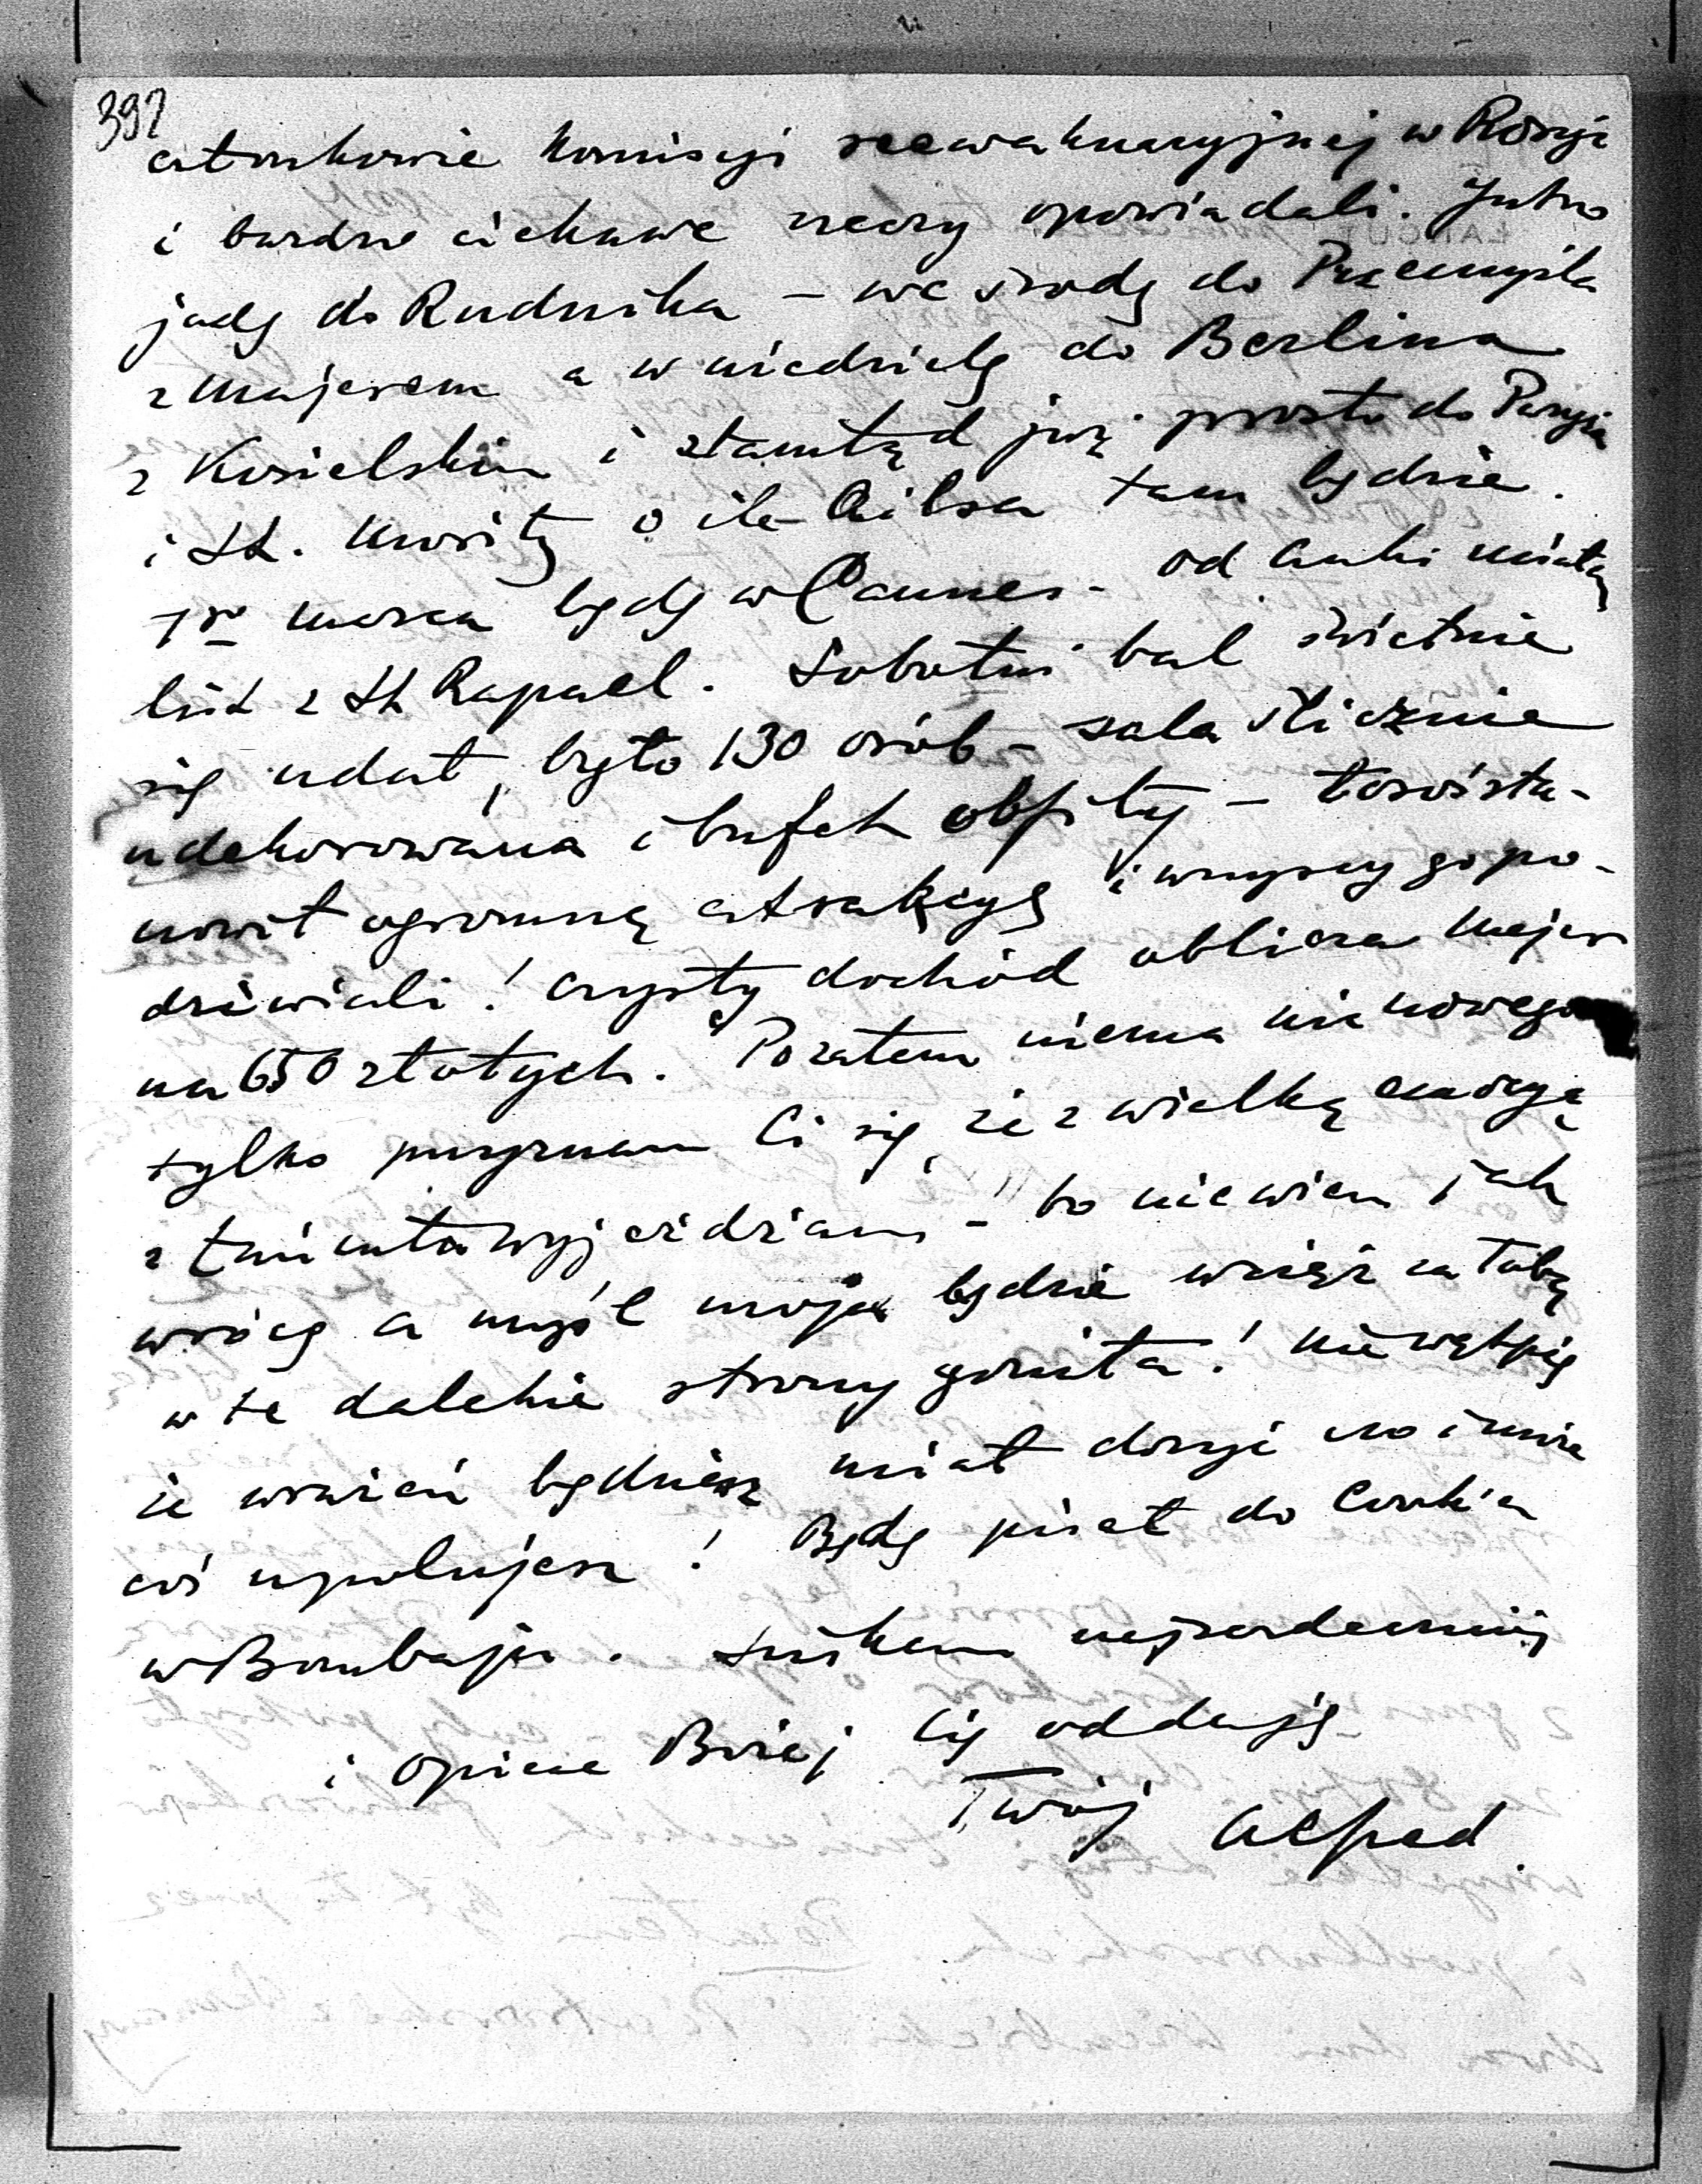 392
członkowie Komisyi reewakuacyjnej w Rosyi
i bardzo ciekawe rzeczy opowiadali. Jutro
jadę do Rudnika – we środę do Przemyśla
z Majerem a w niedzielę do Berlina
z Kosielskim i ztamtąd już prosto do Paryża
i St. Moritz o ile Ailsa tam będzie.
1go marca będę w Cannes – od Anki miałem
list z St Rapael. Sobotni bal świetnie
się udał, było 130 osób – sala ślicznie
udekorowana i bufet obfity – łosoś sta-
nowił ogromną atrakcyę i wszyscy go po-
dziwiali! Czysty dochód oblicza Majer
na 650 złotych. Pozatem niema nic nowego
tylko przyznam Ci się, że z wielką emocyą
z Łańcuta wyjeżdżam – bo niewiem jak
wrócę a myśl moja będzie wciąż za Tobą
w te dalekie strony goniła! Nie wątpię
że wrażeń będziesz miał dosyć no i może
coś upolujesz! Będę pisał do Cooka
w Bombaju. Ściskam najserdeczniej
i opiece Bożej Cię oddaję
Twój Alfred